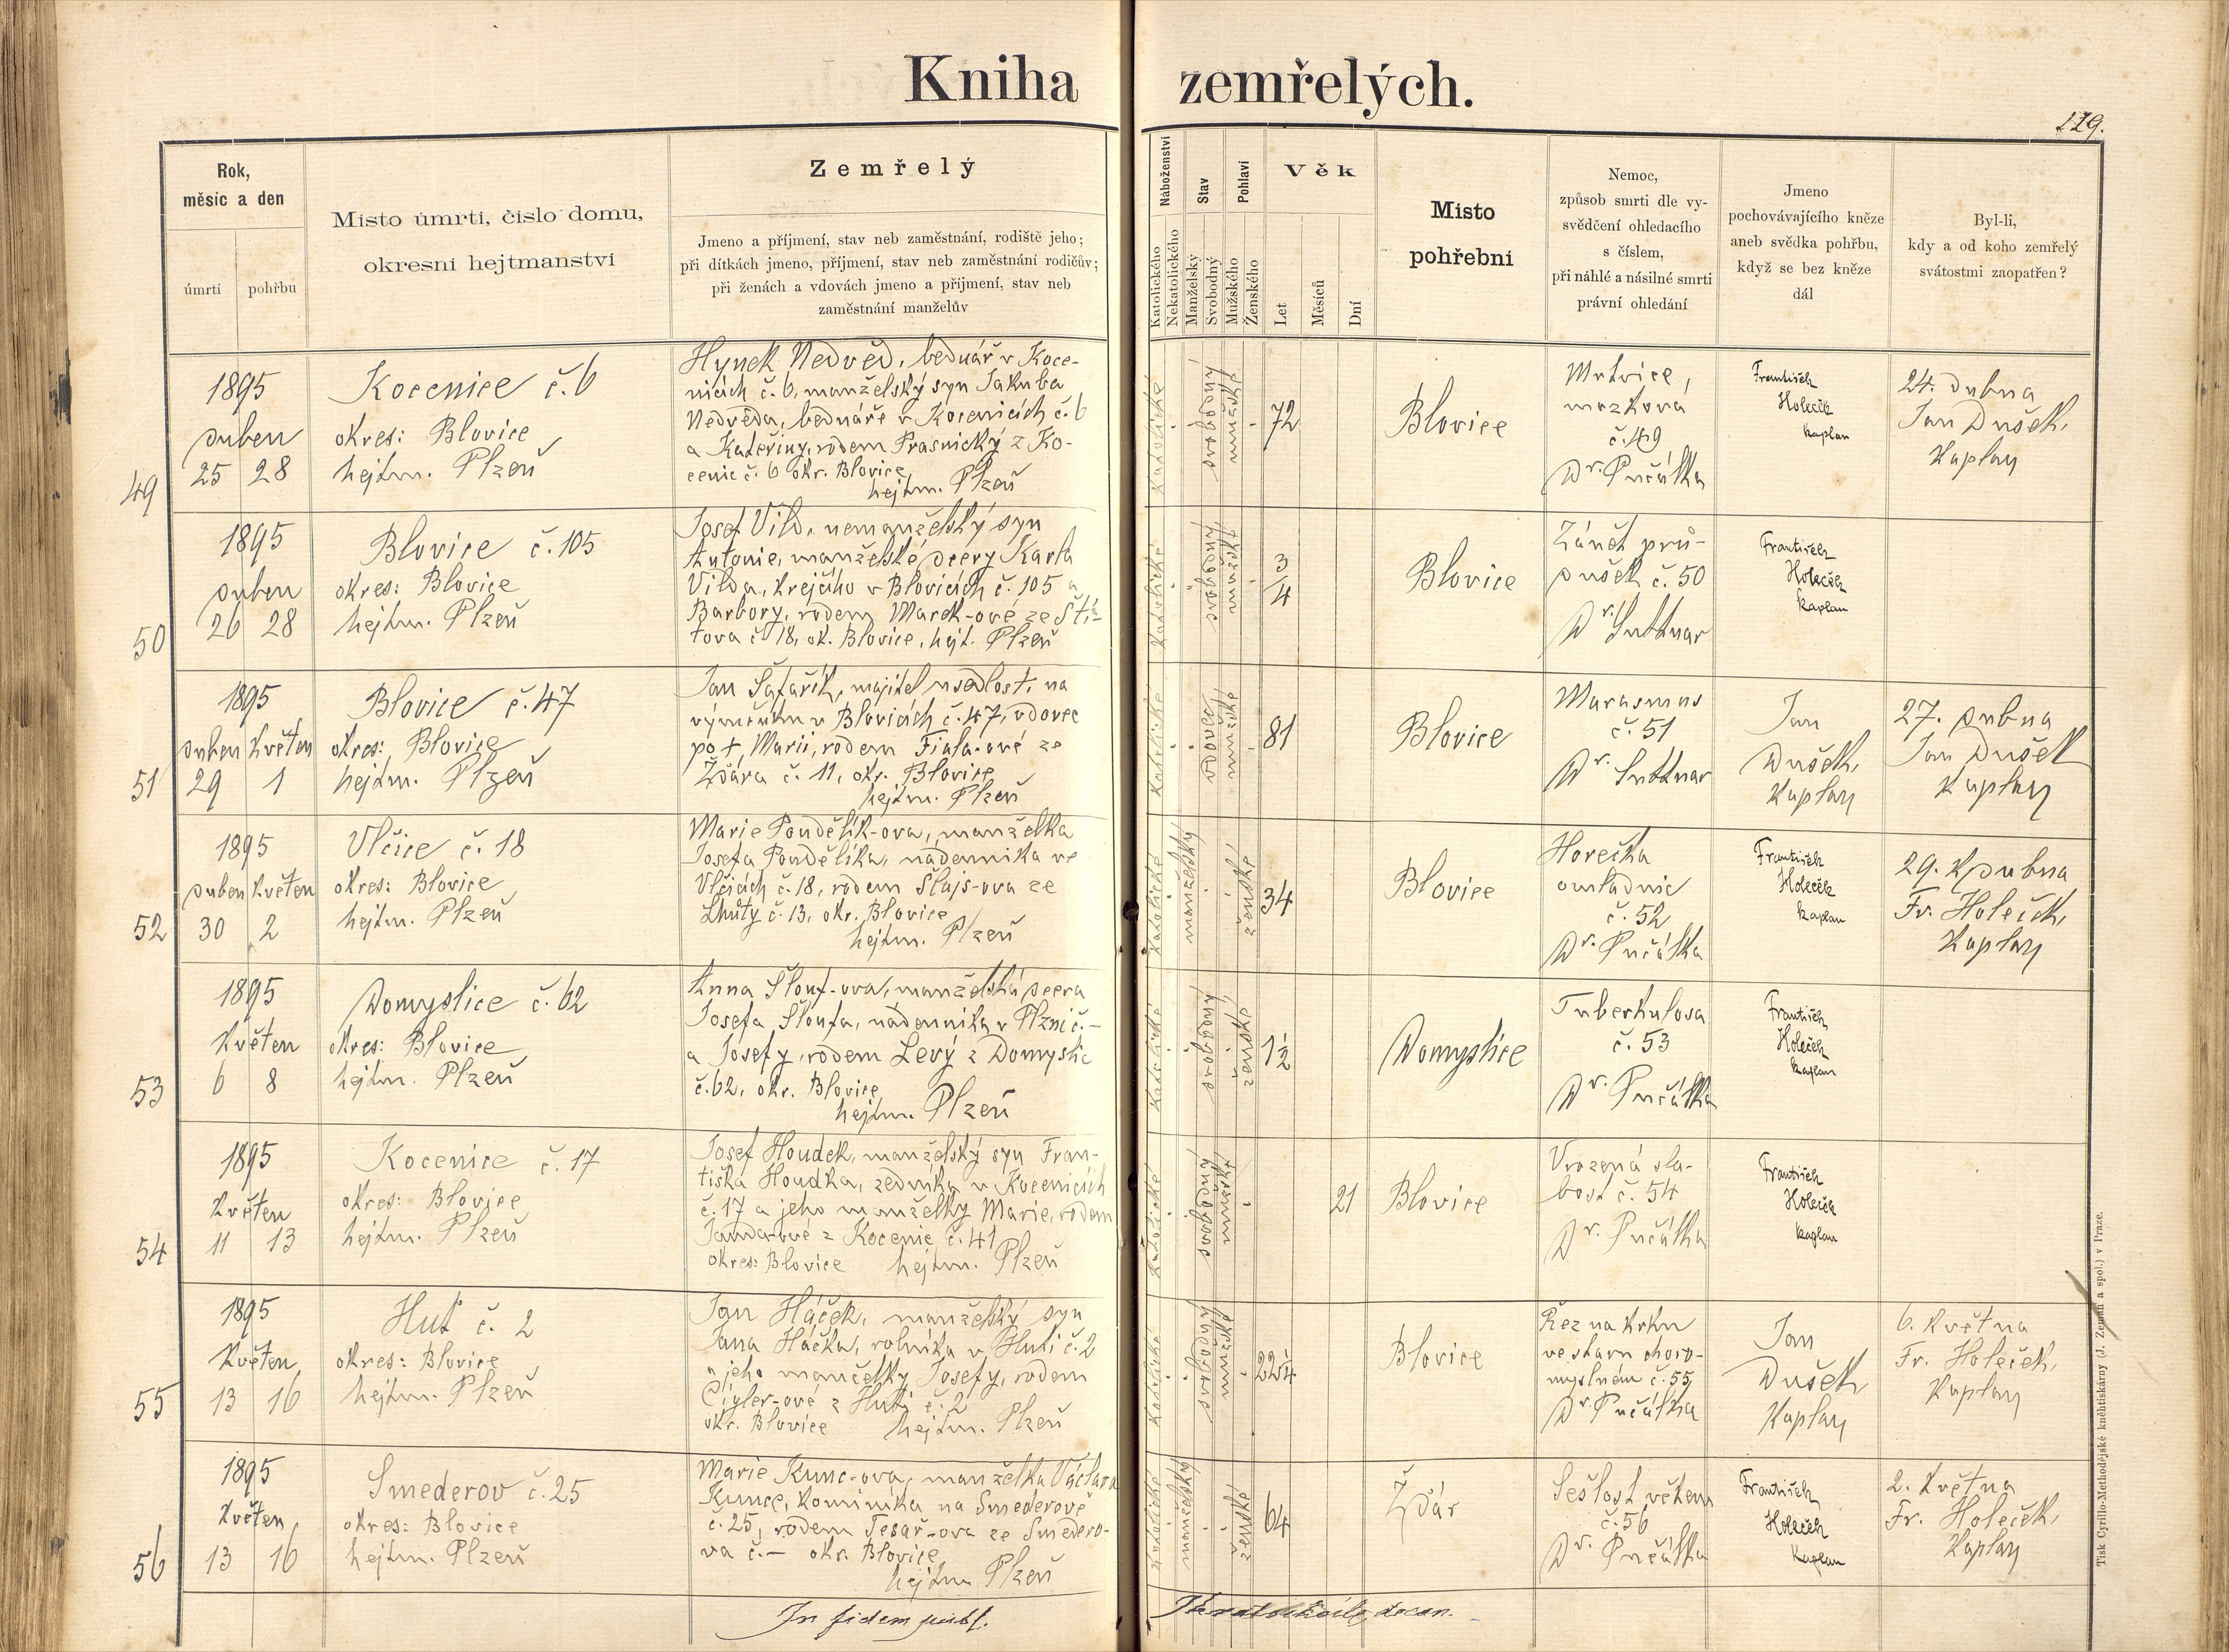 Kniha zemřelých.
119.
Rok,
měsíc a den
úmrtí
pohřbu
Místo úmrtí, číslo domu,
okresní hejtmanství
Zemřelý
Jmeno a příjmení, stav neb zaměstnání, rodiště jeho;
při dítkách jmeno, příjmení, stav neb zaměstnání rodičův;
při ženách a vdovách jmeno a příjmení, stav neb
zaměstnání manželův
Náboženství
Katolického
Nekatolického
Stav
Manželský
Svobodný
Pohlaví
Mužského
Ženského
Věk
Let
Měsíců
Dní
Místo
pohřební
Nemoc,
způsob smrti dle vy-
svědčení ohledacího
s číslem,
při náhlé a násilné smrti
právní ohledání
Jmeno
pochovávajícího kněze
aneb svědka pohřbu,
když se bez kněze
dál
Byl-li,
kdy a od koho zemřelý
svátostmi zaopatřen?
49
1895
duben
25 28
Kocenice č. 6
okres: Blovice
hejtm. Plzeň
Hynek Nedvěd, bednář v Koce-
nicích č. 6, manželský syn Jakuba
Nedvěda, bednáře v Kocenicích č. 6
a Kateřiny, rodem Prasnický z Ko-
cenic č. 6 okr. Blovice,
hejtm. Plzeň
katolické
svobodný
mužské
72
Blovice
Mrtvice,
mozková
č. 49
Dr. Pučálka
František
Holeček
kaplan
24. dubna
Jan Dušek,
kaplan
50
1895
duben
26 28
Blovice č. 105
okres: Blovice
hejtm. Plzeň
Josef Vild, nemanželský syn
Antonie, manželské dcery Karla
Vilda, krejčího v Blovicích č. 105 a
Barbory, rodem Marek-ové ze Ští-
tova č. 18, ok. Blovice, hejt. Plzeň
katolické
svobodný
mužské
3/4
Blovice
Zánět prů-
dušek č. 50
Dr. Suttnar
František
Holeček
kaplan
51
1895
duben květen
29 1
Blovice č. 47
okres: Blovice
hejtm. Plzeň
Jan Šafařík, majitel usedlosti na
výměnku v Blovicích č. 47, vdovec
po +, Marii, rodem Fiala-ové ze
Ždára č. 11, okr. Blovice
hejtm. Plzeň
katolické
vdovec
mužské
81
Blovice
Marasmus
č. 51
Dr. Suttnar
Jan
Dušek,
kaplan
27. dubna
Jan Dušek
kaplan
52
1895
duben květen
30 2
Vlčice č. 18
okres: Blovice
hejtm. Plzeň
Marie Pondělík-ova, manželka
Josefa Pondělíka, nádenníka ve
Vlčicích č. 18, rodem Šlajs-ova ze
Lhůty č. 13, okr. Blovice
hejtm. Plzeň
katolické
manželský
ženské
34
Blovice
Horečka
omladnic
č. 52
Dr. Pučálka
František
Holeček
kaplan
29. dubna
Fr. Holeček,
kaplan
53
1895
květen
6 8
Domyslice č. 62
okres: Blovice
hejtm. Plzeň
Anna Šlouf-ova, manželská dcera
Josefa Šloufa, nádenníka v Plzni č. –
a Josefy, rodem Levý z Domyslic
č. 62, okr. Blovice
hejtm. Plzeň
katolické
svobodný
ženské
1½
Domyslice
Tuberkulosa
č. 53
Dr. Pučálka
František
Holeček
kaplan
54
1895
květen
11 13
Kocenice č. 17
okres: Blovice
hejtm. Plzeň
Josef Houdek, manželský syn Fran-
tiška Houdka, zedníka v Kocenicích
č. 17 a jeho manželky Marie, rodem
z Kocenic č. 41
okres: Blovice hejtm. Plzeň
katolické
svobodný
mužské
21
Blovice
Vrozená sla-
bost č. 54
Dr. Pučálka
František
Holeček
kaplan
55
1895
květen
13 16
Huť č. 2
okres: Blovice
hejtm. Plzeň
Jan Háček, manželský syn
Jana Háčka, rolníka v Huti č. 2
a jeho manželky Josefy, rodem
Cígler-ové z Huti č. 2
okr. Blovice hejtm. Plzeň
katolické
svobodný
mužské
Blovice
Řez na krku
ve stavu choro-
myslném č. 55
Dr. Pučálka
Jan
Dušek
kaplan
6. května
Fr. Holeček,
kaplan
56
1895
květen
13 16
Smederov č. 25
okres: Blovice
hejtm. Plzeň
Marie Kunc-ova, manželka Václava
Kunce, kominíka na Smederově
č. 25, rodem Tesař-ova ze Smedero-
va č. – okr. Blovice
hejtm Plzeň
katolické
manželský
ženské
64
Ždár
Sešlost věkem
č. 56
Dr. Pučálka
František
Holeček
kaplan
2. května
Fr. Holeček,
kaplan
In fidem publ.
decan.
Tisk Cyrillo-Methodějské knihtiskárny (J. Zeman a spol.) v Praze.